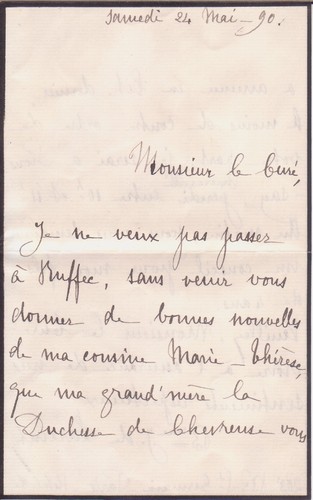 Samedi 24 Mai - 90.
Monsieur le Curé,
Je ne veux pas passer
à Ruffec, sans venir vous
donner de bonnes nouvelles
de ma cousine Marie-Thérèse,
que ma grand'mère la
Duchesse de Chevreuse vous